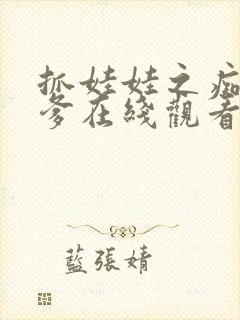 抓娃娃之痴
爹在綫觀看
藍張婧